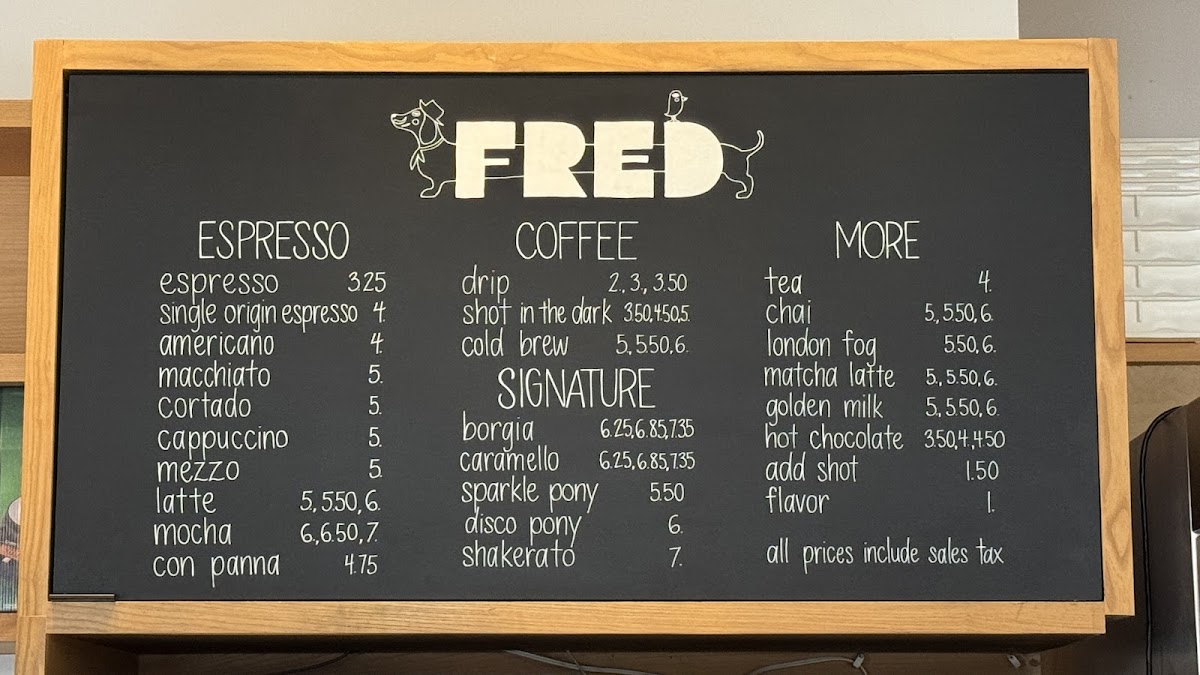 FRED
ESPRESSO
espresso 3.25
single origin espresso 4.
americano 4.
macchiato 5.
cortado 5.
cappuccino 5.
mezzo 5.
latte 5, 5.50, 6.
mocha 6, 6.50, 7.
con panna 4.75
COFFEE
drip 2., 3., 3.50
shot in the dark 3.50, 4.50, 5.
cold brew 5, 5.50, 6.
SIGNATURE
borgia 6.25, 6.85, 7.35
caramello 6.25, 6.85, 7.35
sparkle pony 5.50
disco pony 6.
shakerato 7.
MORE
tea 4.
chai 5, 5.50, 6.
london fog 5.50, 6.
matcha latte 5., 5.50, 6.
golden milk 5, 5.50, 6.
hot chocolate 3.50, 4, 4.50
add shot 1.50
flavor 1.
all prices include sales tax